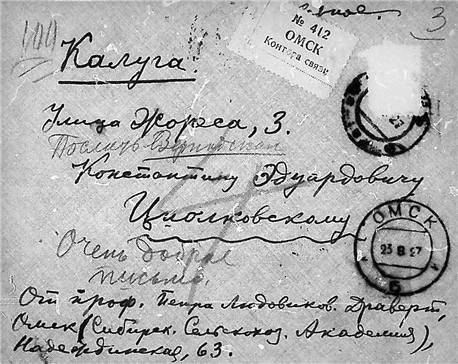 100
3
№ 412
ОМСК
Контора связи
Калуга.
Улица Жореса, 3.
Послать
Константину Эдуардовичу
Циолковскому
Очень доброе
письмо.
ОМСК
23 8 27
Б
От проф. Петра Людовиков. Драверт,
Омск (Сибирск. Сельскохоз. Академия),
Надеждинская, 63.